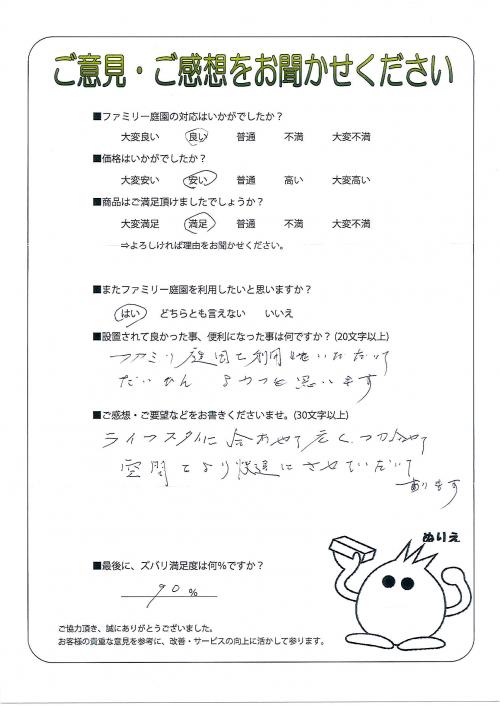 ご意見・ご感想をお聞かせください
■ファミリー庭園の対応はいかがでしたか？
大変良い 良い 普通 不満 大変不満
■価格はいかがでしたか？
大変安い 安い 普通 高い 大変高い
■商品はご満足頂けましたでしょうか？
大変満足 満足 普通 不満 大変不満
⇒よろしければ理由をお聞かせください。
■またファミリー庭園を利用したいと思いますか？
はい どちらとも言えない いいえ
■設置されて良かった事、便利になった事は何ですか？(20文字以上)
ファミリ庭園を利用させいただいて
だいへん よかつと思います
■ご感想・ご要望などをお書きくださいませ。(30文字以上)
ライフスタイルに合わせて広く、
空間をより快適にさせていただいて
おります
ぬりえ
■最後に、ズバリ満足度は何％ですか？
90％
ご協力頂き、誠にありがとうございました。
お客様の貴重な意見を参考に、改善・サービスの向上に活かして参ります。